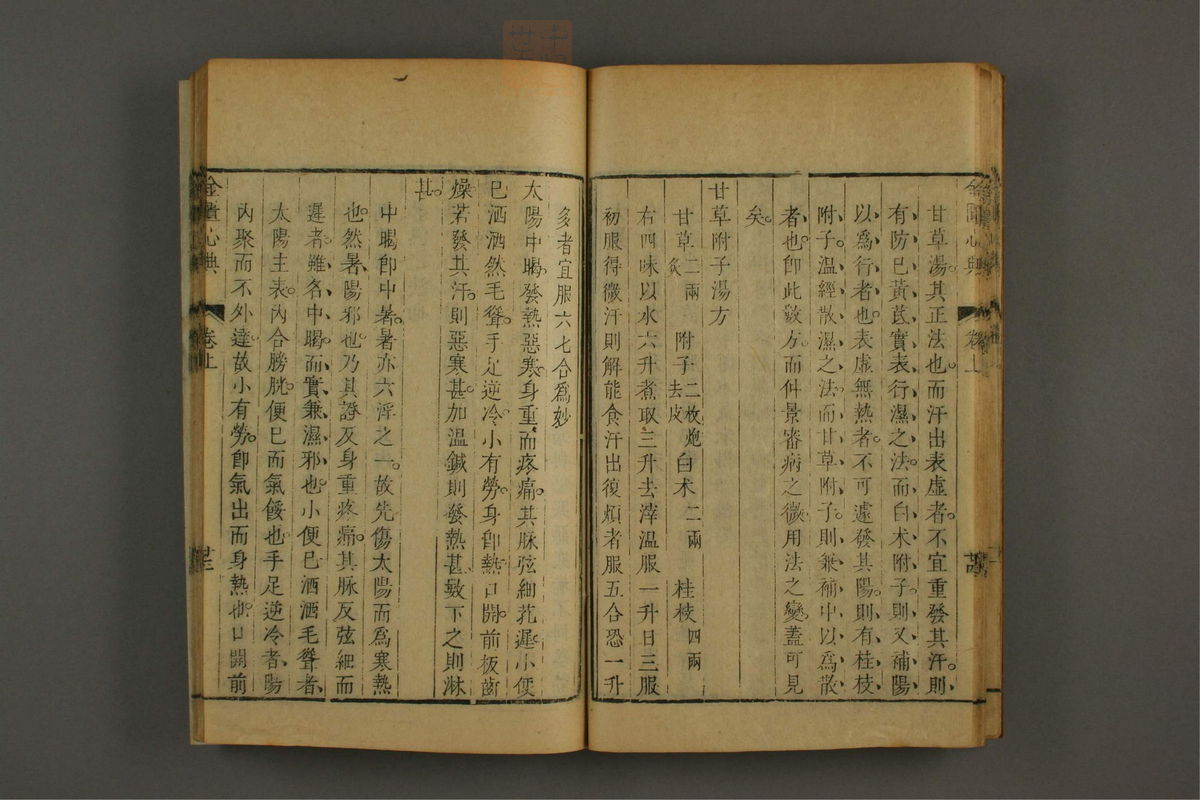 甘草湯其正法也而汗出表虛者不宜重發其汗則
有防巳黃芪實表行濕之法而白术附子則又補陽
以爲行者也表虛無熱者不可遽發其陽則有桂枝
附子温經散濕之法而甘草附子則兼補中以爲散
者也卽此數方而仲景審病之微用法之變蓋可見
矣
甘草附子湯方
甘草二兩炙 附子二枚炮去皮 白术二兩 桂枝四兩
右四味以水六升煮取三升去滓温服一升日三服
初服得微汗則解能食汗出復煩者服五合恐一升
多者宜服六七合爲妙
太陽中暍發熱惡寒身重而疼痛其脉弦細芤遲小便
巳洒洒然毛聳手足逆冷小有勞身卽熱口開前板齒
燥若發其汗則惡寒甚加温鍼則發熱甚數下之則淋
甚
中暍卽中暑暑亦六淫之一故先傷太陽而爲寒熱
也然暑陽邪也乃其證反身重疼痛其脉反弦細而
遲者雖名中暍而實兼濕邪也小便巳洒洒毛聳者
太陽主表內合膀胱便巳而氣餒也手足逆冷者陽
內聚而不外達故小有勞卽氣出而身熱也口開前
金匱心典
卷上